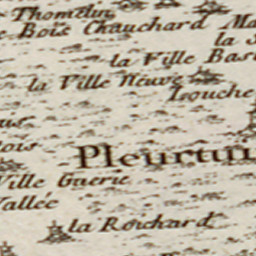 Thomelin
Bois Chauchard Ma
la
la Ville Bas
la Ville Neuve
Louche
ois
Pleurtui
Ville Guerie
Vallée
la Roichard